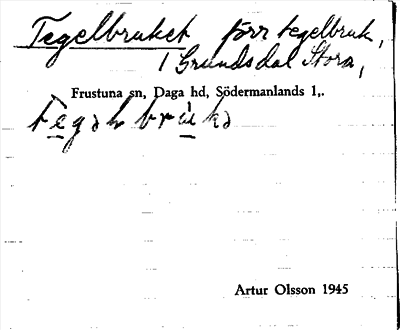 Tegelbruket förr tegelbruk,
1 Grundsdal Stora,
Frustuna sn, Daga hd, Södermanlands l,.
Artur Olsson 1945